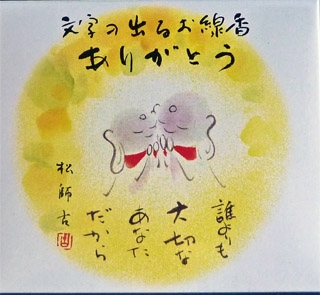 文字の出るお線香
ありがとう
誰よりも
大切な
あなた
だから
松師古